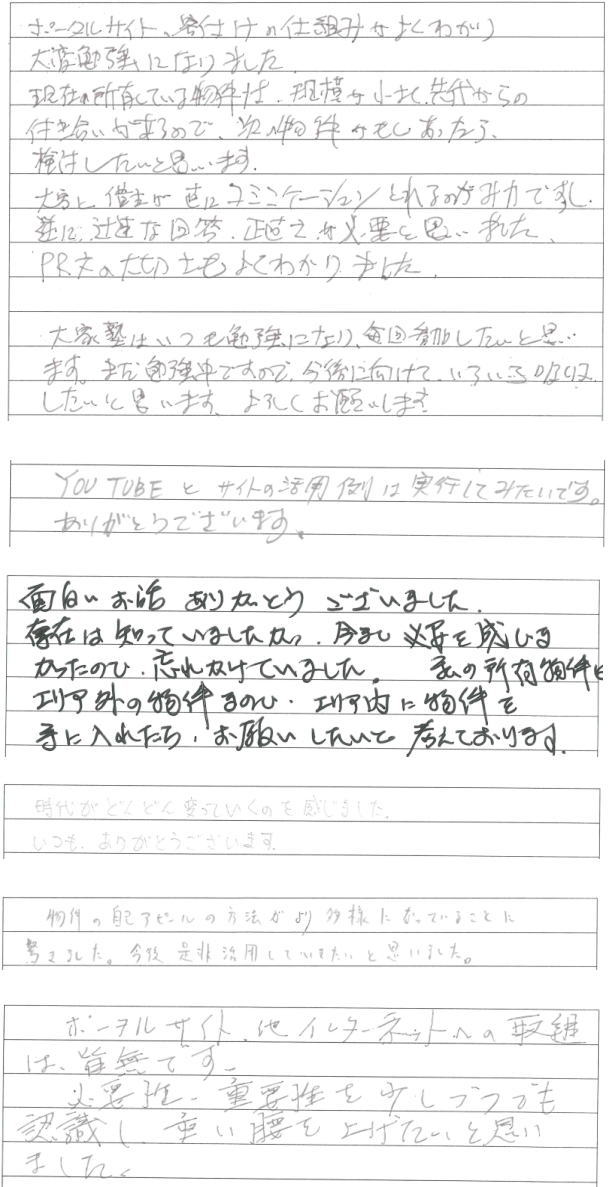 ポータルサイト、客付けの仕組みがよくわかり
大変勉強になりました
現在の所有している物件は、規模が小さく先代からの
付き合いがあるので、次の物件がもしあったら、
検討したいと思います。
大家と借主が直にコミュニケーションとれるのが魅力ですし、
逆に、迅速な回答、正直さが必要と思いました、
PR文の大切さもよくわかりました、
大家塾はいつも勉強になり、毎回参加したいと思い
ます。まだ勉強中ですので、今後に向けて、いろいろ吸収
したいと思います よろしくお願いします
YOU TUBE と サイトの活用例は実行してみたいです。
ありがとうございます。
面白いお話 ありがとう ございました.
存在は知っていましたが、今まで必要を感じな
かったので、忘れかけていました。 私の所有物件は
エリア外の物件なので、エリア内に物件を
手に入れたら、お願いしたいと考えております.
時代がどんどん変っていくのを感じました.
いつも、ありがとうございます
物件の アピールの方法がより多様になっていることに
驚きました。今後是非活用していきたいと思いました。
ポータルサイト、他インターネットへの取組
は、皆無です。
必要性、重要性を少しづつでも
認識し、重い腰を上げたいと思い
ました。